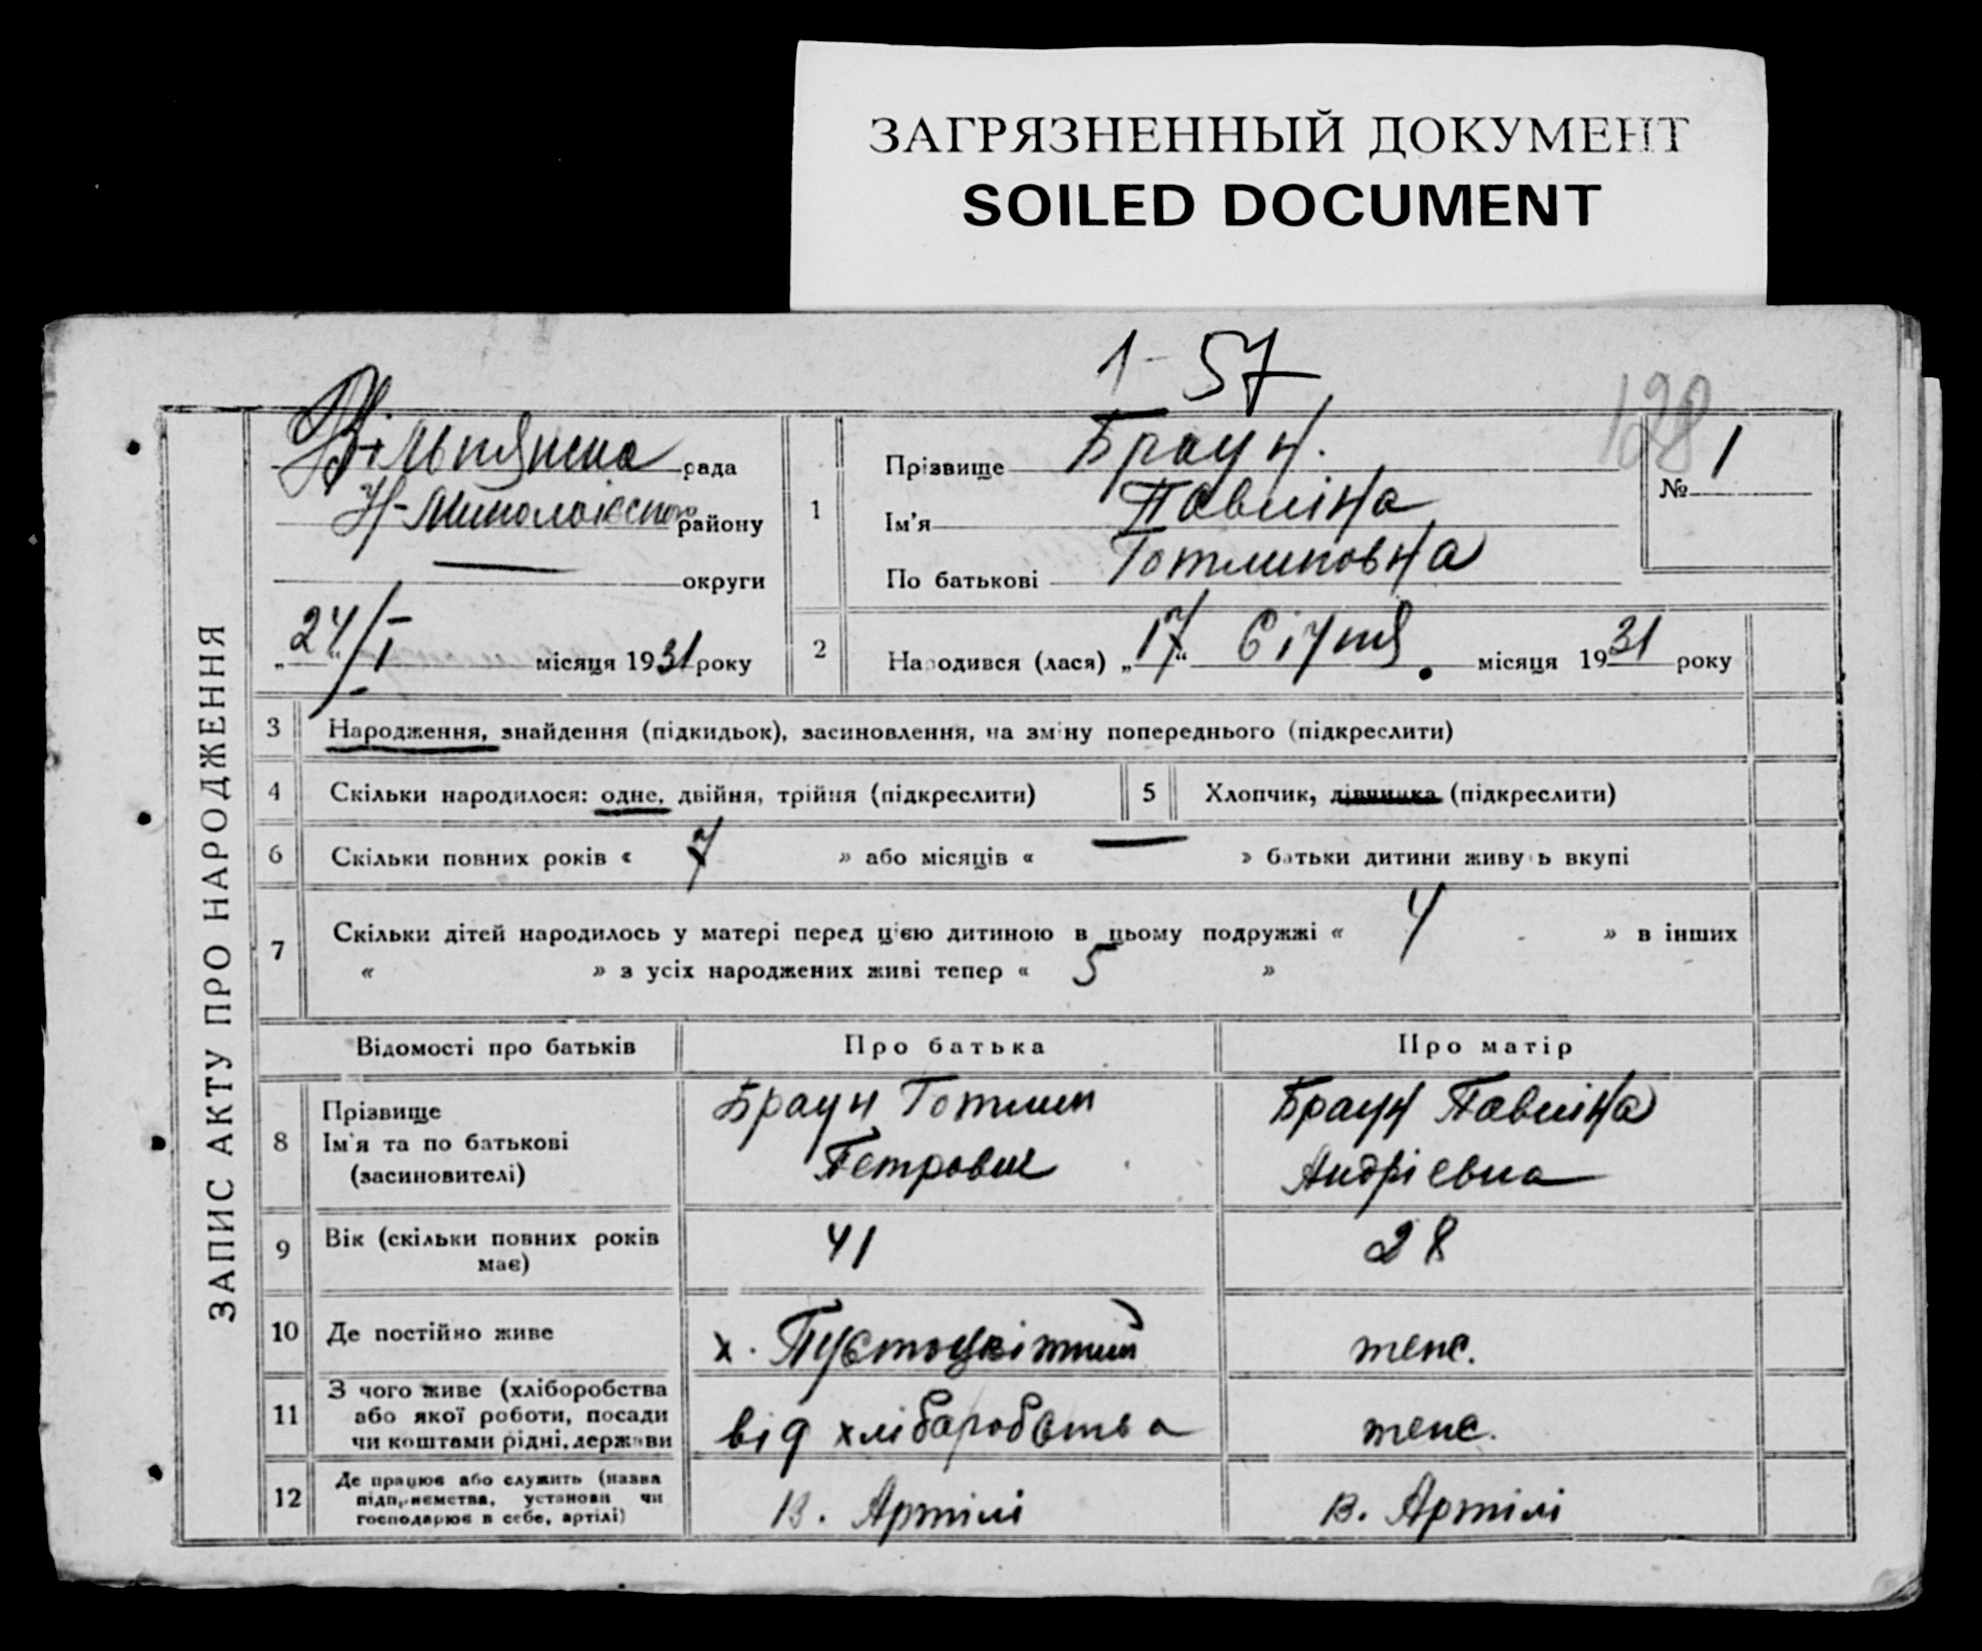 ЗАГРЯЗНЕННЫЙ ДОКУМЕНТ
SOILED DOCUMENT
1-57
128
ЗАПИС АКТУ ПРО НАРОДЖЕННЯ
рада
району
округи
"24/I" місяця 1931 року
1
Прізвище Браун.
Ім'я Павліна
По батькові Готлиповна
№ 1
2
Народився (лася) „17“ Січня. місяця 1931 року
3 Народження, знайдення (підкидьок), засиновлення, на зміну попереднього (підкреслити)
4 Скільки народилося: одне, двійня, трійня (підкреслити)
5 Хлопчик, дівчинка (підкреслити)
6 Скільки повних років « 7 » або місяців « — » батьки дитини живуть вкупі
7 Скільки дітей народилось у матері перед цією дитиною в цьому подружжі « 4 » в інших
« » з усіх народжених живі тепер « 5 »
Відомості про батьків Про батька Про матір
8 Прізвище
Ім'я та по батькові
(засиновителі)
Браун Готлип
Петрович
Браун Павліна
Андрієвна
9 Вік (скільки повних років
має)
41
28
10 Де постійно живе
х. Пустоцвітний
теже.
11 З чого живе (хліборобства
або якої роботи, посади
чи коштами рідні, держави
від хліборобства
теже.
12 Де працює або служить (назва
підприємства, установи чи
господарює в себе, артілі)
В. Артілі
В. Артілі